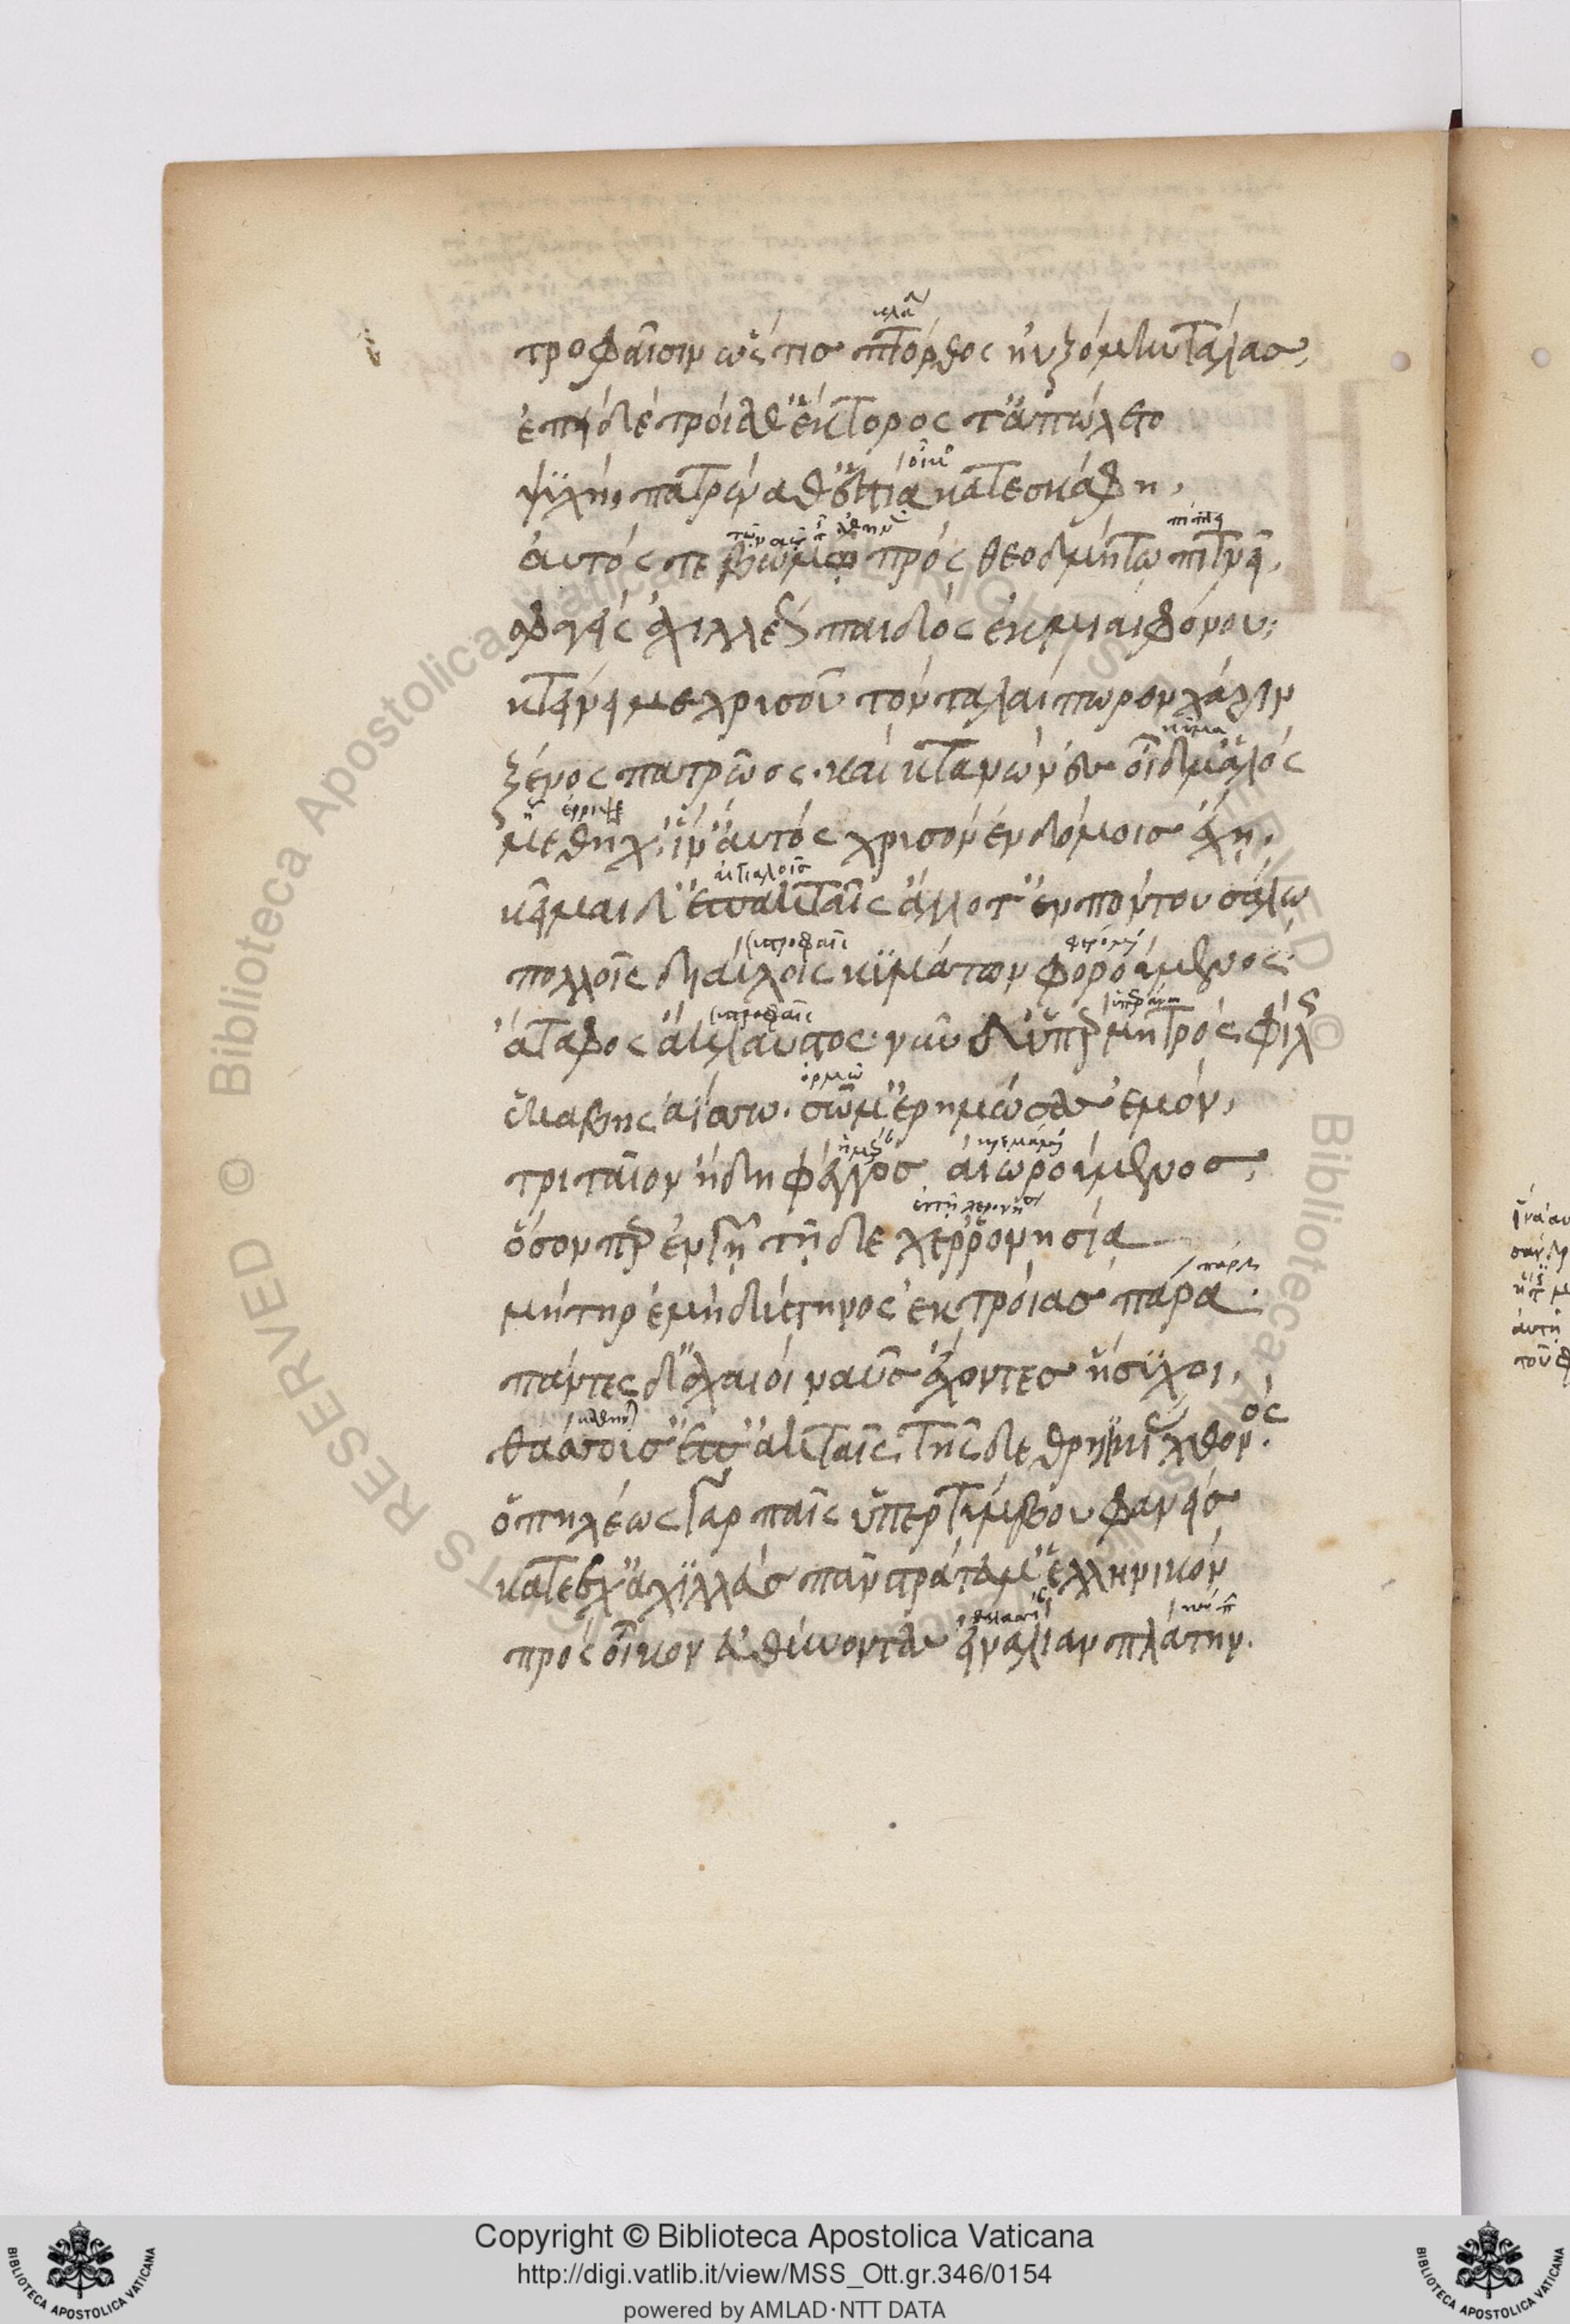 τροφαῖσιν ὥς τις πτόρθος ηὐξόμην τάλας,
ἐπεὶ δὲ τροία θ' ἕκτορος τ' ἀπώλετο
ψυχή, πατρώα θ' ἑστία κατεσκάφη,
αὐτός τε βωμῷ πρὸς θεοδμήτω πιτνεῖ,
σφαγεὶς ἀχιλλέως παιδὸς ἐκ μιαιφόνου;
κτείνει με χρυσοῦ τὸν ταλαίπωρον χάριν
ξένος πατρῶος. καὶ κτανὼν ἐς οἶδμ' ἁλὸς
μεθῆχ', ἵν' αὐτὸς χρυσὸν ἐν δόμοις ἔχῃ.
κεῖμαι δ' ἐπ' ἀκταῖς ἄλλοτ' ἐν πόντου σάλω
πολλοῖς διαύλοις κυμάτων φορούμενος·
ἄταφος ἄκλαυτος· νῦν δ' ὑπὲρ μητρὸς φίλης
ἑκάβης ἀΐσσω. σῶμ' ἐρημώσας ἐμόν,
τριταῖον ἤδη φέγγος αἰωρούμενος,
ὅσον περ ἐν γῇ τῇδε χερρονησία
μήτηρ ἐμὴ δύστηνος ἐκ τροίας πάρα.
πάντες δ' ἀχαιοὶ ναῦς ἔχοντες ἥσυχοι,
θάσσους' ἐπ' ἀκταῖς, τῆσδε θρηικίας χθονός.
ὁ πηλέως γὰρ παῖς ὑπὲρ τύμβου φανεὶς
κατέσχ' ἀχιλλεὺς πᾶν στράτευμ' ἑλληνικὸν
πρὸς οἶκον εὐθύνοντας ἐναλίαν πλάτην.
Copyright © Biblioteca Apostolica Vaticana
http://digi.vatlib.it/view/MSS_Ott.gr.346/0154
powered by AMLAD·NTT DATA